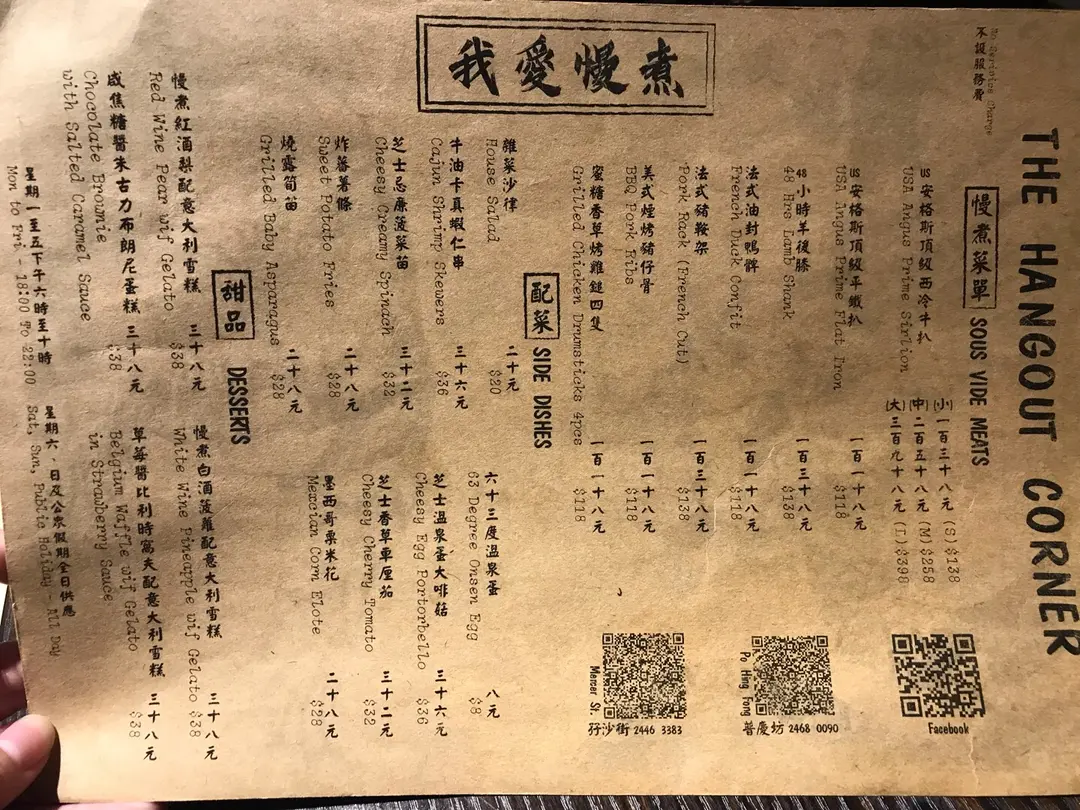 THE HANGOUT CORNER
No Service Charge
不設服務費
我愛慢煮
慢煮菜單 SOUS VIDE MEATS
US安格斯頂級西冷牛扒 (小) 一百三十八元 (S) $138
USA Angus Prime Sirlion (中) 二百五十八元 (M) $258
(大) 三百九十八元 (L) $398
US安格斯頂級平鐵扒 一百一十八元
USA Angus Prime Flat Iron $118
48小時羊後膝 一百三十八元
48 Hrs Lamb Shank $138
法式油封鴨髀 一百一十八元
French Duck Confit $118
法式豬鞍架 一百三十八元
Pork Rack (French Cut) $138
美式煙烤豬仔骨 一百一十八元
BBQ Pork Ribs $118
蜜糖香草烤雞鎚四隻 一百一十八元
Grilled Chicken Drumsticks 4pcs $118
Facebook
Po Hing Fong
普慶坊 2468 0090
Mercer St.
孖沙街 2446 3383
配菜 SIDE DISHES
雜菜沙律 二十元
House Salad $20
牛油卡真蝦仁串 三十六元
Cajun Shrimp Skewers $36
芝士忌廉菠菜苗 三十二元
Cheesy Creamy Spinach $32
炸蕃薯條 二十八元
Sweet Potato Fries $28
燒露筍苗 二十八元
Grilled Baby Asparagus $28
六十三度溫泉蛋 八元
63 Degree Onsen Egg $8
芝士溫泉蛋大啡菇 三十六元
Cheesy Egg Portorbello $36
芝士香草車厘茄 三十二元
Cheesy Cherry Tomato $32
墨西哥粟米花 二十八元
Mexcian Corn Elote $28
甜品 DESSERTS
慢煮紅酒梨配意大利雪糕 三十八元
Red Wine Pear wif Gelato $38
咸焦糖醬朱古力布朗尼蛋糕 三十八元
Chocolate Brownie $38
with Salted Caramel Sauce
慢煮白酒菠蘿配意大利雪糕 三十八元
White Wine Pineapple wif Gelato $38
草莓醬比利時窩夫配意大利雪糕 三十八元
Belgium Waffle wif Gelato $38
in Strawberry Sauce
星期一至五下午六時至十時
Mon to Fri - 18:00 To 22:00
星期六、日及公眾假期全日供應
Sat, Sun, Public Holiday - All Day